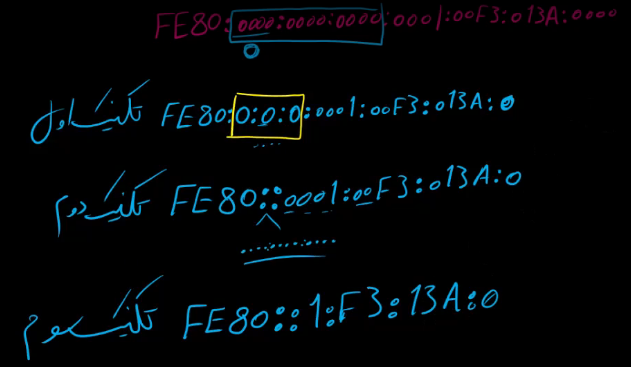 FE80:0000:0000:0000:0001:00F3:013A:0000
تکنیک اول FE80:0:0:0:0001:00F3:013A:0
تکنیک دوم FE80::0001:00F3:013A:0
تکنیک سوم FE80::1:F3:13A:0